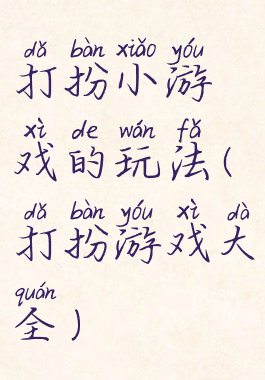 dǎ bàn xiǎo yóu
打扮小游
xì de wán fǎ
戏的玩法(
dǎ bàn yóu xì dà
打扮游戏大
quán
全)